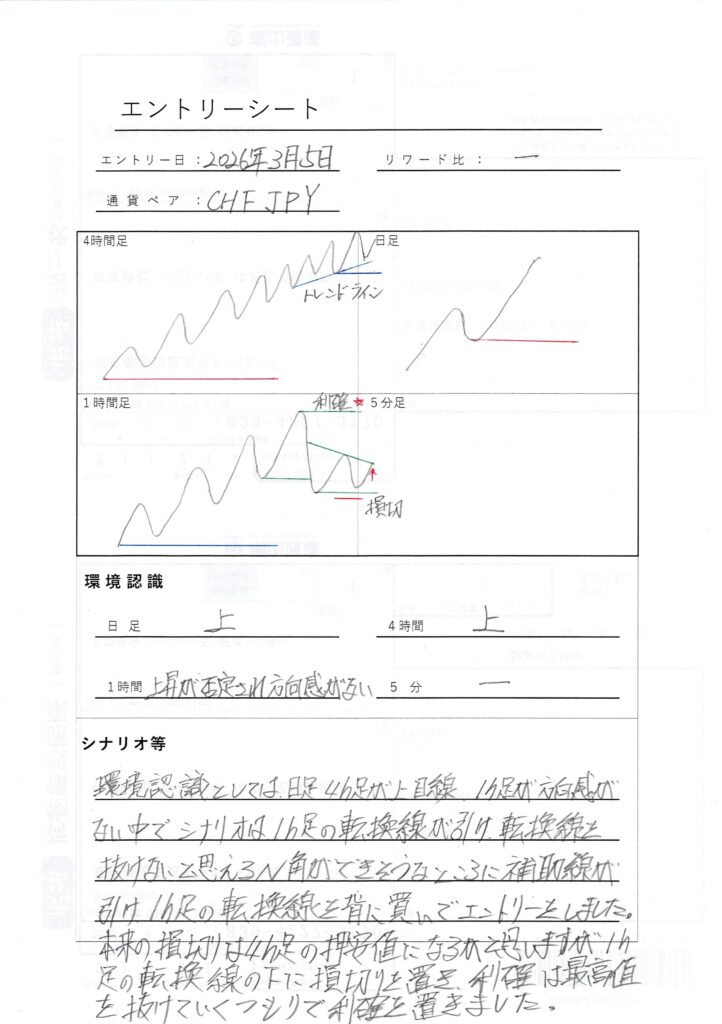 エントリーシート
エントリー日：2026年3月5日
リワード比：ー
通貨ペア：CHFJPY
4時間足
日足
トレンドライン
1時間足
利確
5分足
損切
環境認識
日足 上
4時間 上
1時間 上昇が否定され方向感がない
5分 ー
シナリオ等
環境認識としては日足4h足が上目線、1h足が方向感が
ない中でシナリオは1h足の転換線が引け、転換線を
抜けないと思えるN角ができそうなところに補助線が
引け1h足の転換線を背に買いでエントリーをしました。
本来の損切りは4h足の押安値になるかと思いますが1h
足の転換線の下に損切りを置き、利確は最高値
を抜けていくつもりで利確を置きました。